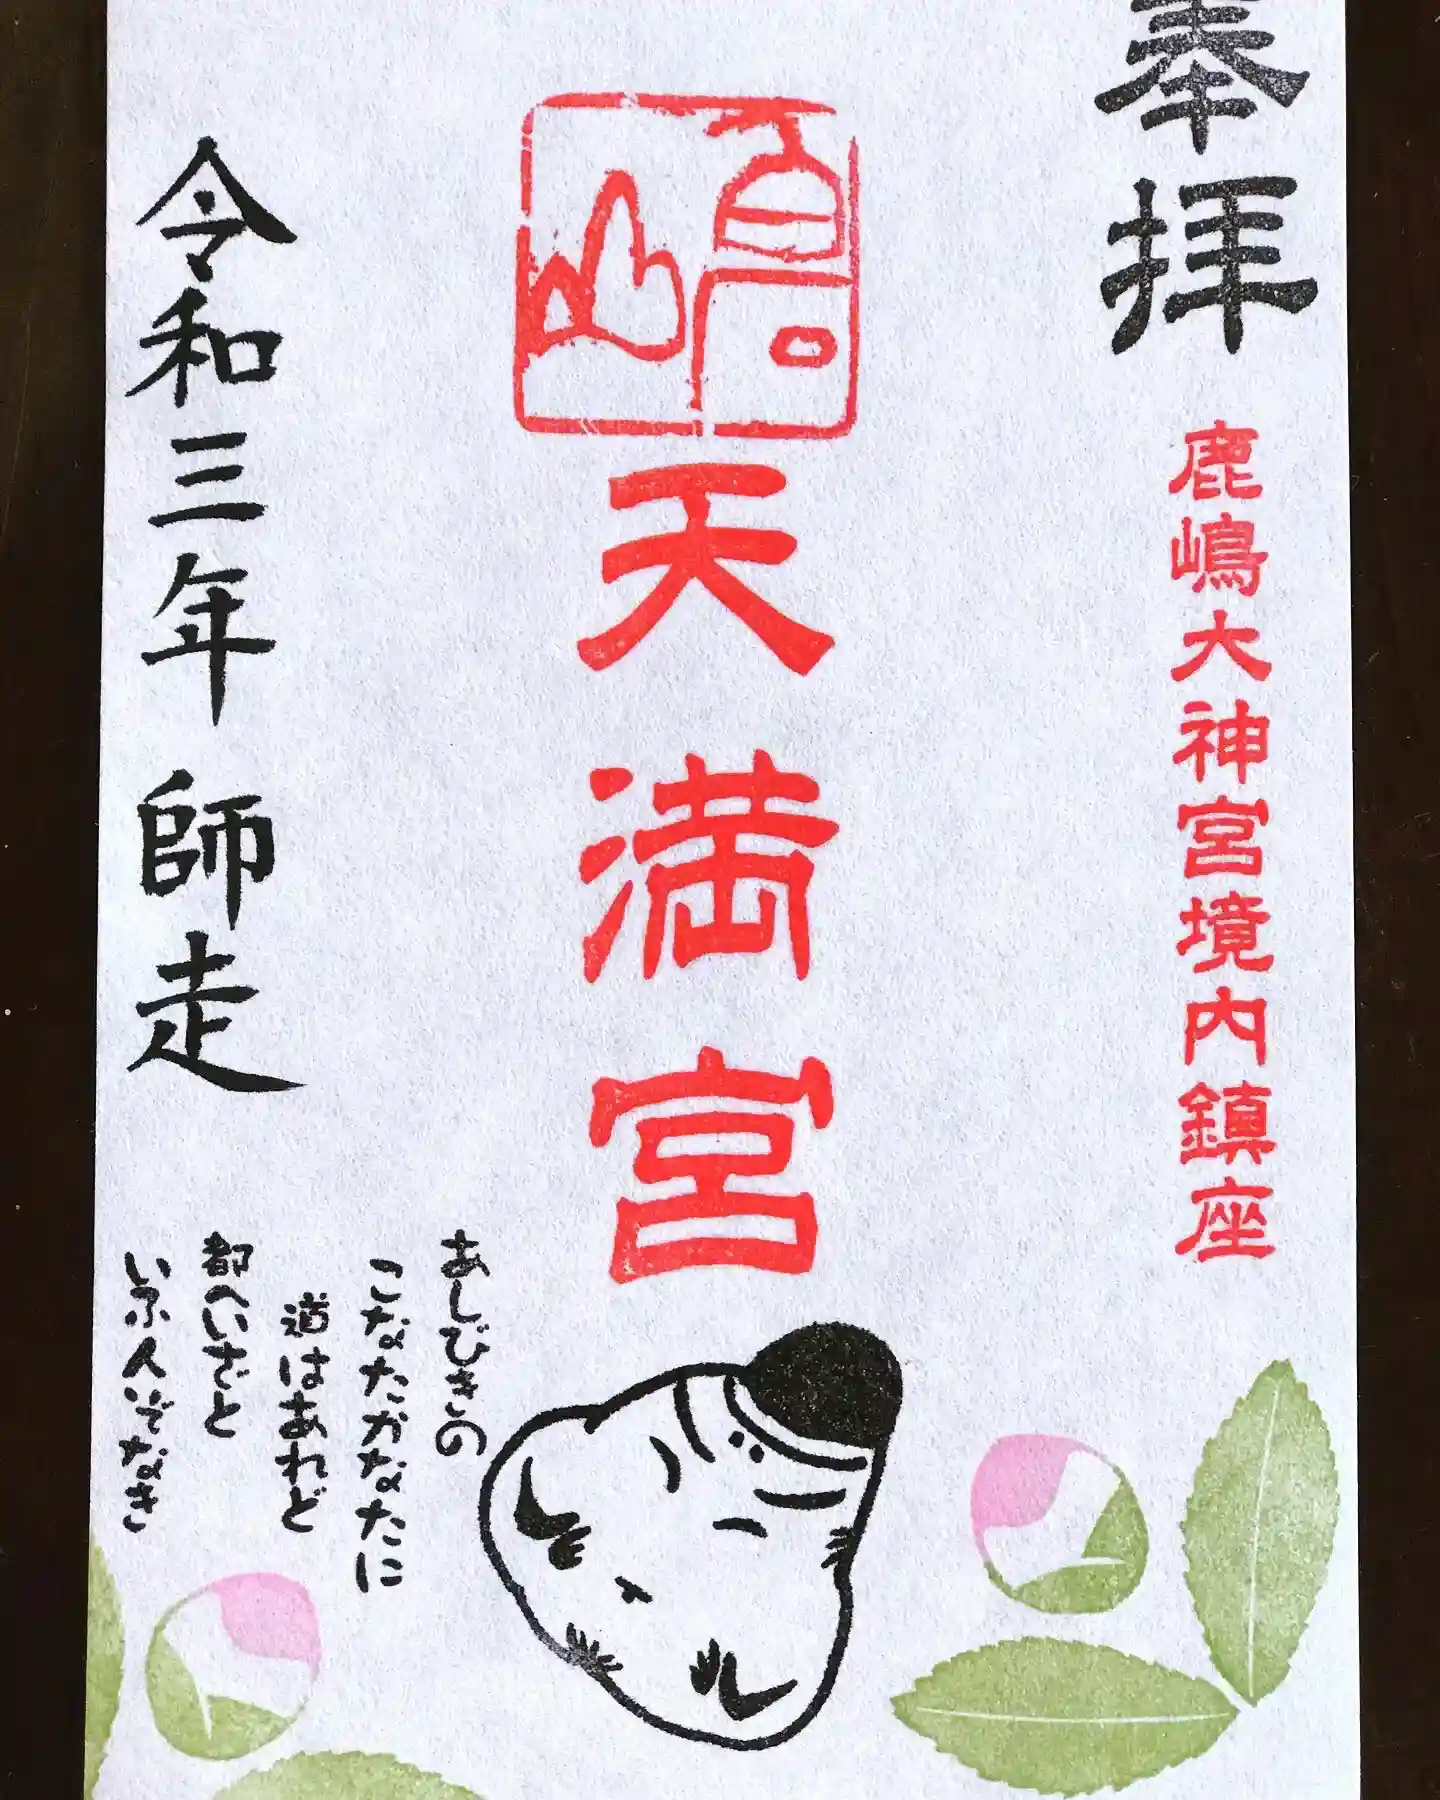 奉拝
鹿嶋大神宮境内鎮座
嶋
天満宮
あしびきの
こなたかなたに
道はあれど
都へいざと
いふ人ぞなき
令和三年 師走